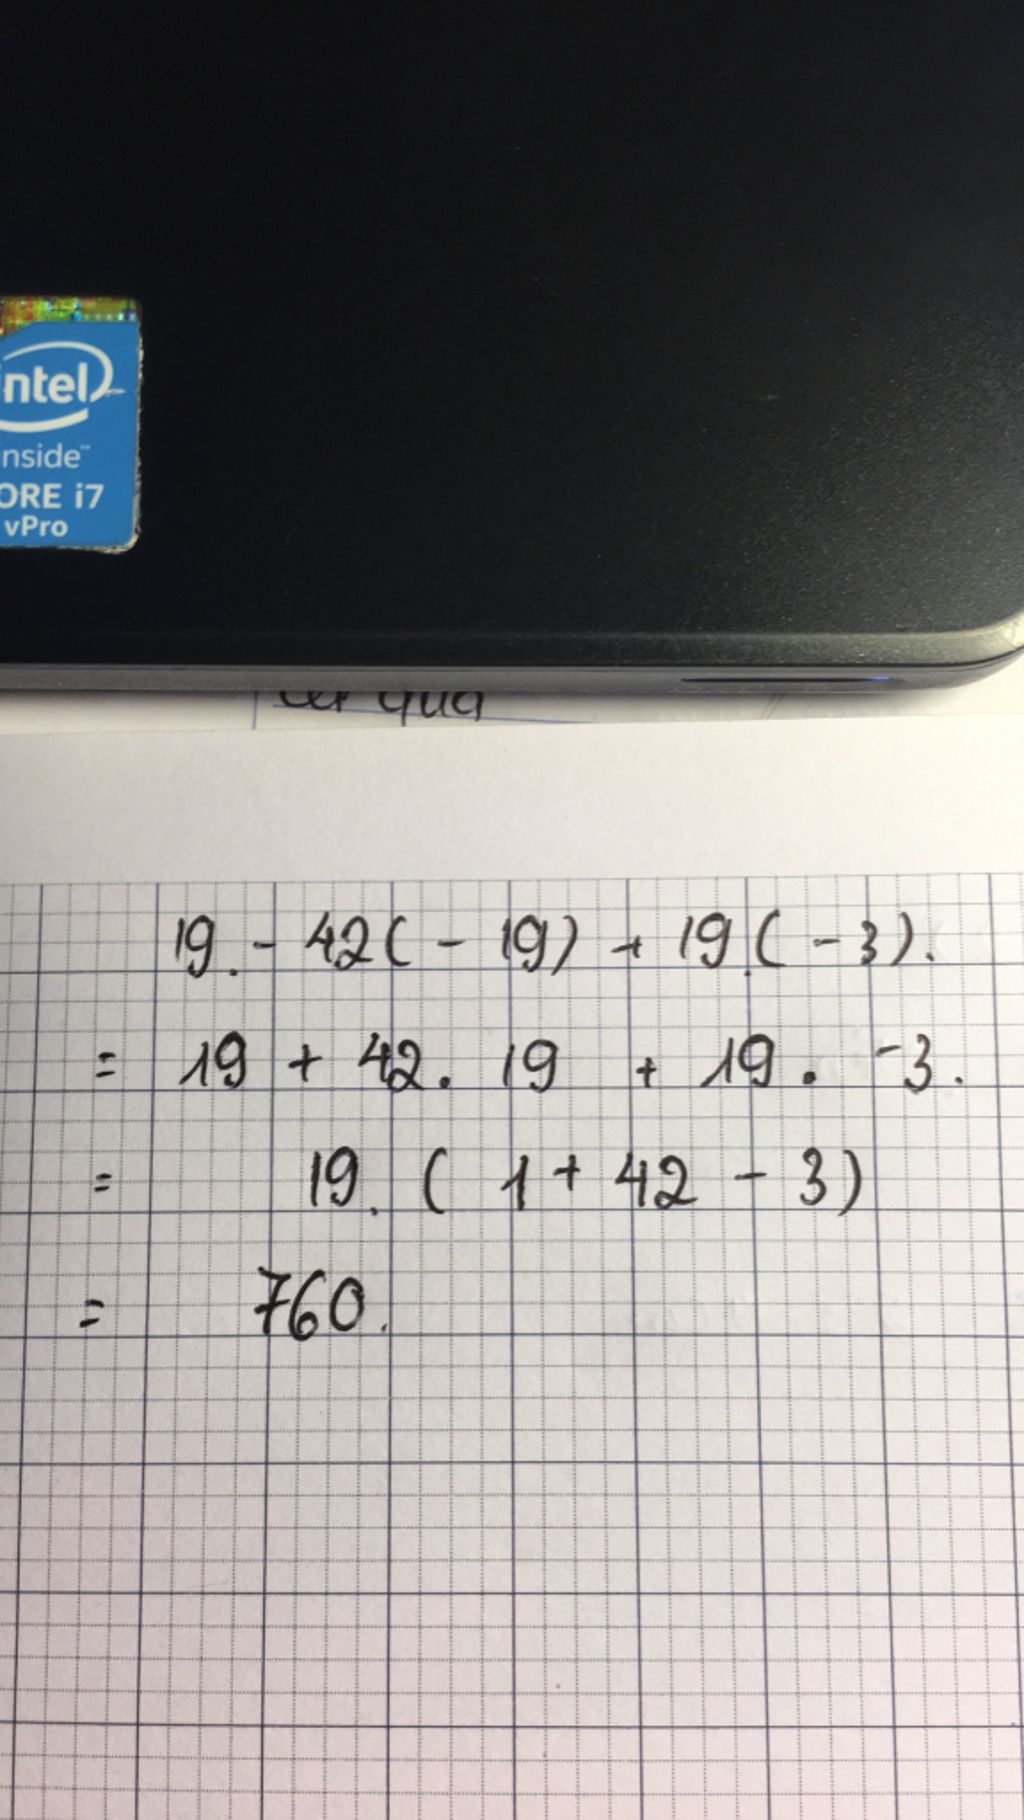 intel
inside™
CORE i7
vPro
19. - 42( - 19) + 19.( - 3).
= 19 + 42. 19 + 19. -3.
= 19. ( 1 + 42 - 3)
= 760.